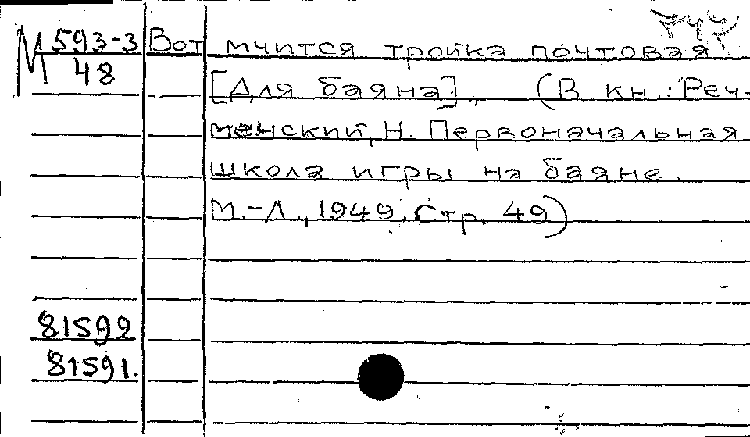 М 593-3 Вот мчится тройка почтовая
48 [Для баяна]. (В кн.: Реч-
менский, Н. Первоначальная
школа игры на баяне.
М.-Л., 1949. Стр. 49)
81592
81591.